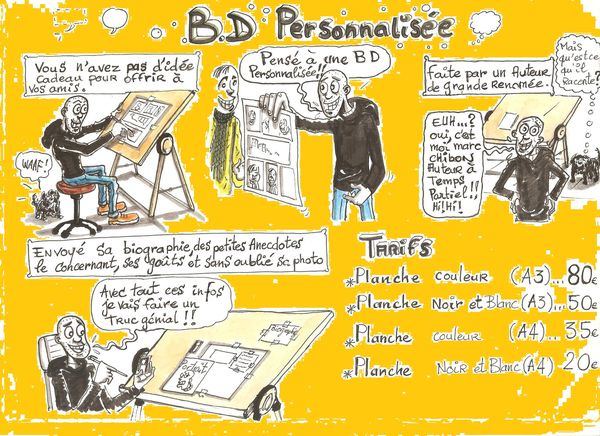 B.D Personnalisée
Vous n'avez pas d'idée
cadeau pour offrir à
vos amis.
WAAF!
Pensé a une BD
Personnalisée!
Faite par un Auteur
de grande Renomée.
Mais
qu'est ce
qu'il
Raconte?
EUH...?
oui, c'est
moi marc
chibon
Auteur à
Temps
Partiel!!
Hi!Hi!
Envoyé sa biographie, des petites Anecdotes
le concernant, ses goûts et sans oublié sa photo
Avec tout ces infos
je vais faire un
Truc génial!!
Tarifs
*Planche couleur (A3)...80€
*Planche Noir et Blanc (A3)...50€
*Planche couleur (A4)...35€
*Planche Noir et Blanc (A4) 20€